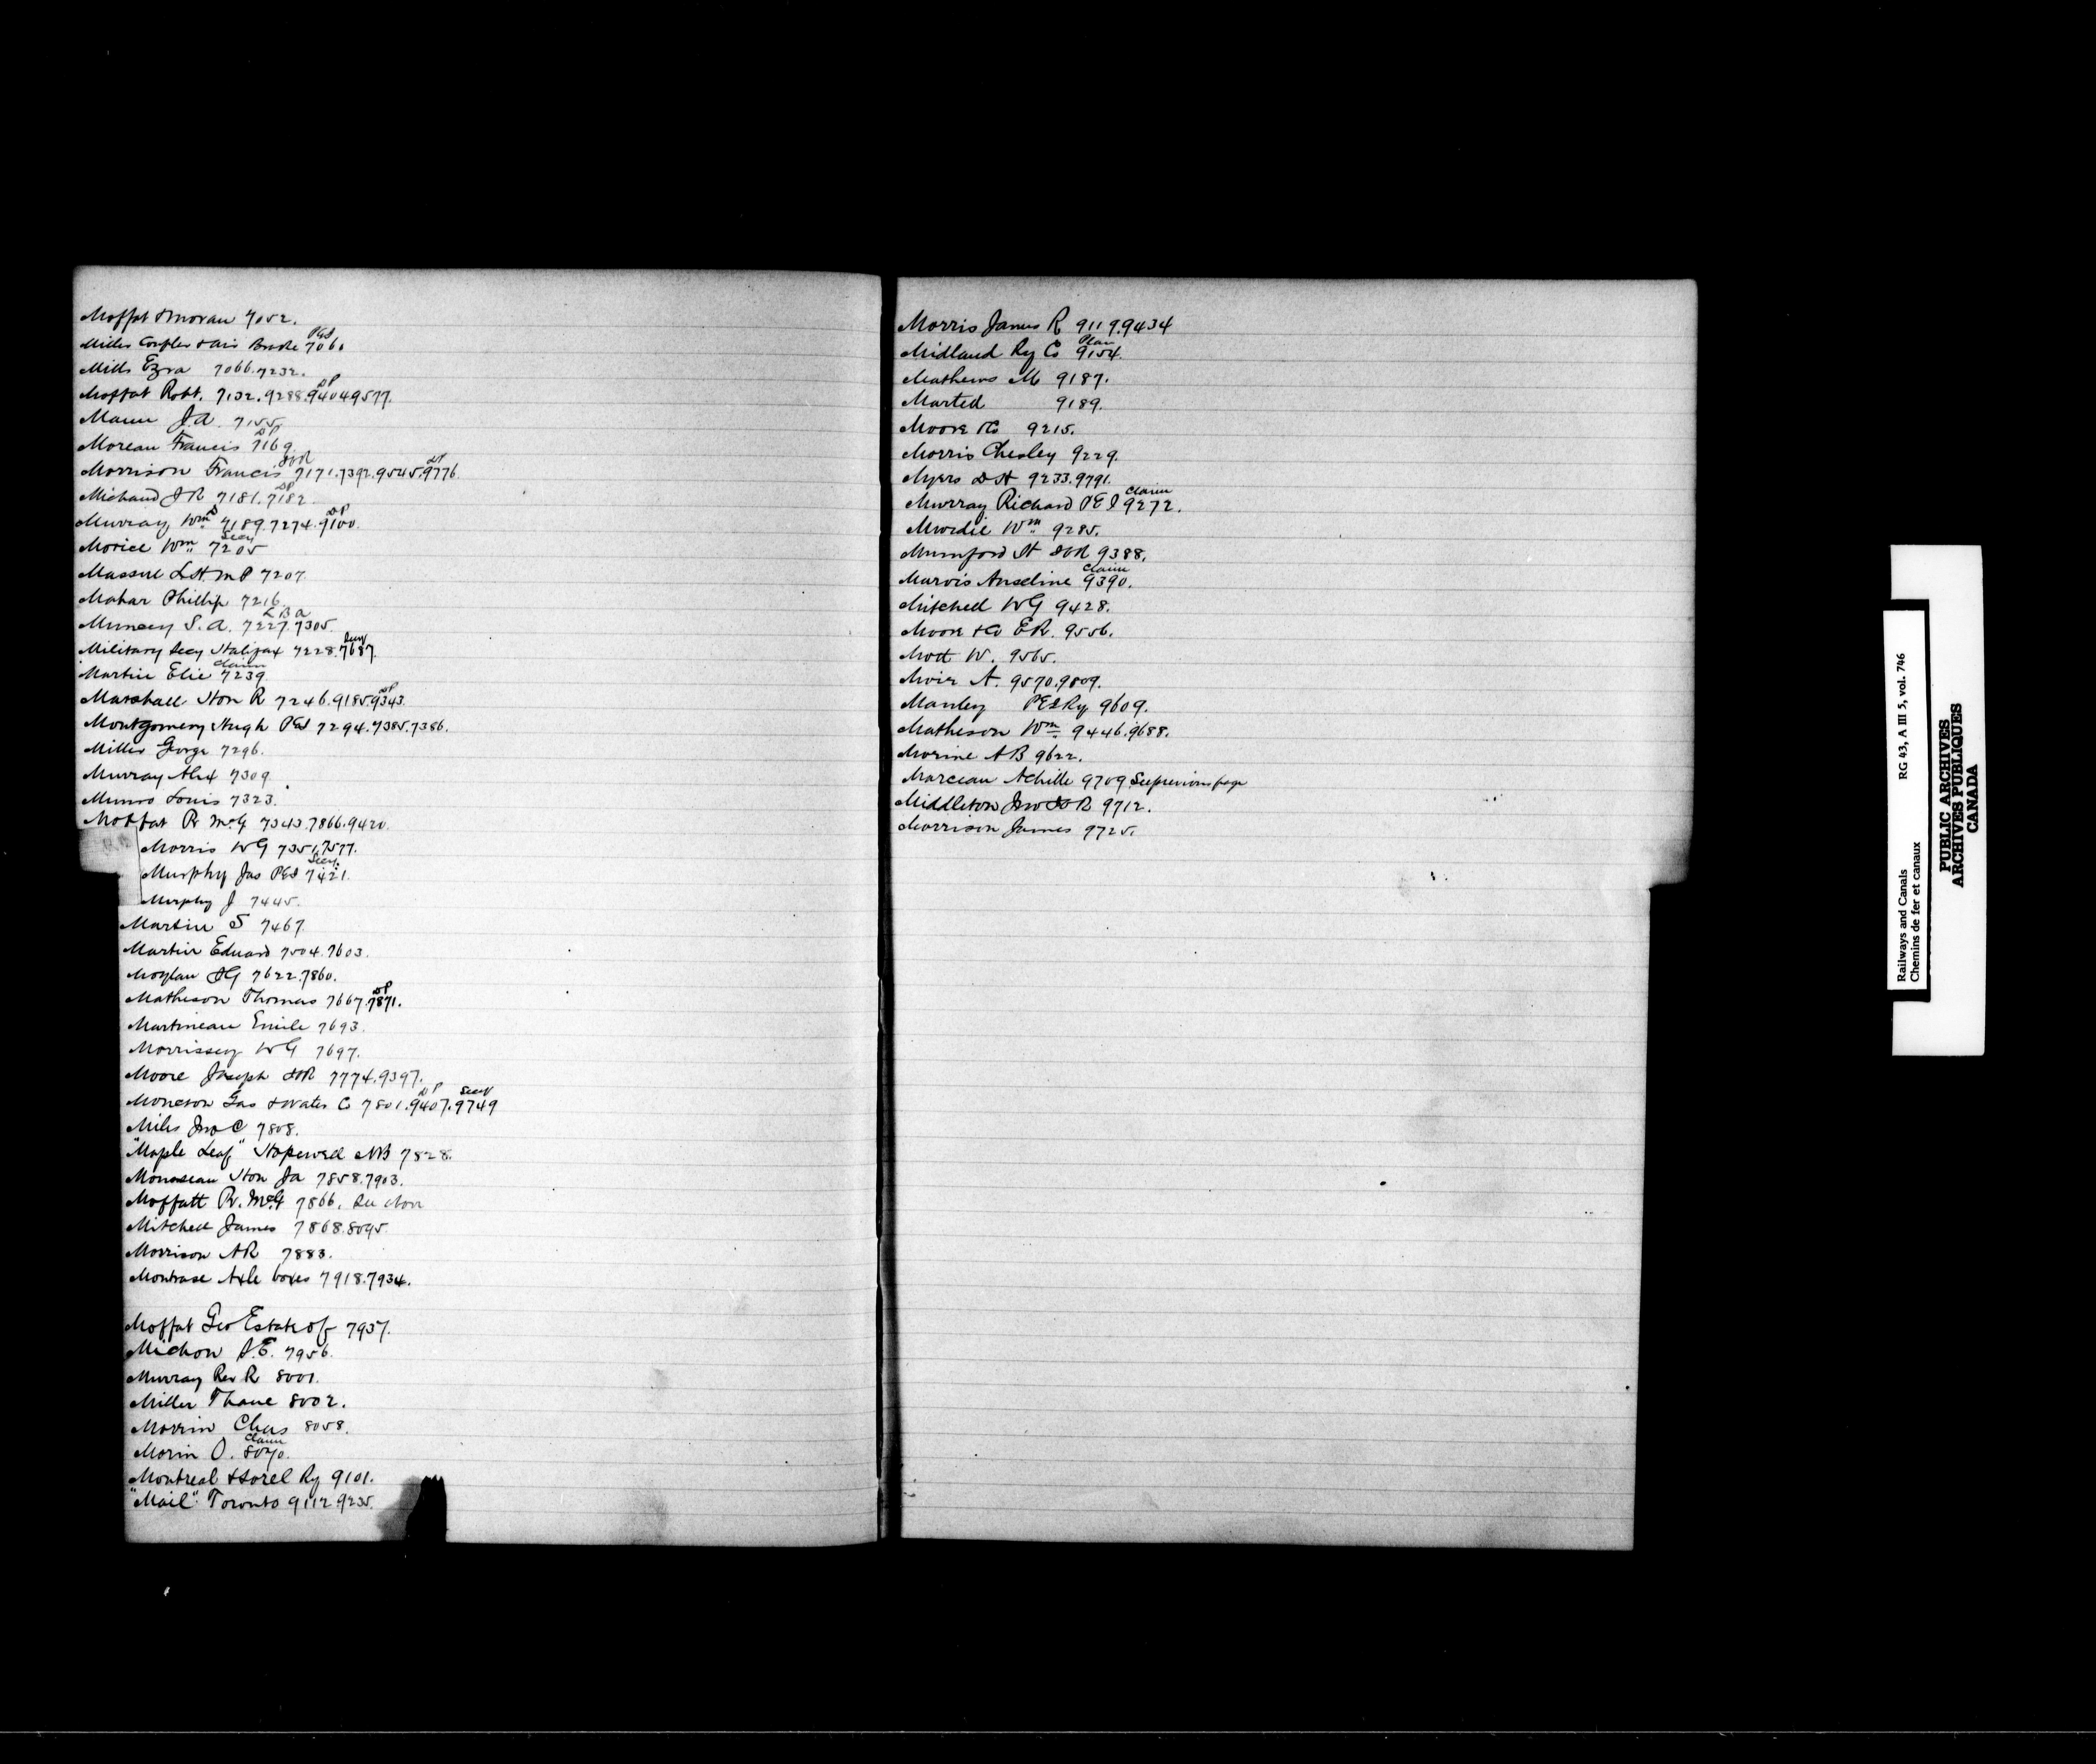 Moffat & Moran 7052.
Miller Coupler & Air Brake PEI 7061
Mills Ezra 7066.7232.
Moffat Robt. 7132.9288.9404 DP 9577.
Mann J.A. 7155
Moreau Francis 7169 DP
Morrison Francis 7171.7392.9545.9776 DP
Michaud J R 7181.7182 DP
Murray Wm 7189.7274.9100 DP
Morice Wm 7205 Secy
Massue L.H. M.P 7207
Mahar Phillip 7216
Muncey S.A. 7227.7305
Military Secy Halifax 7228.7687 Secy
Martin Elie 7239 Claim
Marshall Hon R 7246.9185.9343 DP
Montgomery Hugh PEI 7294.7385.7386.
Miller George 7296.
Murray Alex 7309
Munro Louis 7323.
Moffat R McG 7343.7866.9420
Morris WG 7351.7577.
Murphy Jas PEI 7421 Secy
Murphy J 7445.
Martin S 7467
Martin Edward 7504.7603.
Moylan JG 7622.7860.
Matheson Thomas 7667.7871 DP.
Martineau Emile 7693.
Morrissey WG 7697.
Moore Joseph 7774.9397.
Moncton Gas & Water Co 7801.9407 DP.9749 Secy
Miles Jno C 7808.
"Maple Leaf" Hopewell NB 7828.
Mousseau Hon JA 7858.7903.
Moffatt R. McG 7866. See above
Mitchell James 7868.8095.
Morrison AR 7883.
Montrose Axle boxes 7918.7934.
Moffat Geo Estate of 7937.
Michon A.E. 7956.
Murray Rev R 8001.
Miller Thane 8002.
Morrin Chas 8058.
Morin O. 8070 Claim.
Montreal & Sorel Ry 9101.
"Mail" Toronto 9112.9235.
Morris James R 9119.9434
Midland Ry Co 9154 Plan
Mathews M 9187.
Marted 9189.
Moore & Co 9215.
Morris Chesley 9229.
Myers DH 9233.9791.
Murray Richard PEI 9272 Claim.
Murdie Wm 9285.
Mumford H 9388.
Marvis Anseline 9390 Claim.
Mitchell WG 9428.
Moore & Co ER. 9556.
Mott W. 9565.
Moir A. 9570.9809.
Manley PEI Ry 9609.
Matheson Wm 9446.9688.
Morine AB 9622.
Marceau Achille 9709 See previous page
Middleton Jno 9712.
Morrison James 9725.
Railways and Canals RG 43, A III 5, vol. 746
Chemins de fer et canaux
PUBLIC ARCHIVES
ARCHIVES PUBLIQUES
CANADA